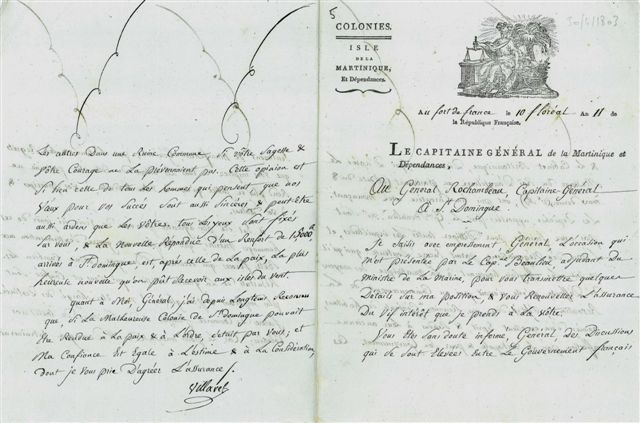 5
30/4/1803
COLONIES.
ISLE
DE LA
MARTINIQUE,
Et Dépendances.
Au fort de france le 10 floréal An 11 de
la République Française.
LE CAPITAINE GÉNÉRAL de la Martinique et
Dépendances,
Au Général Rochambeau, Capitaine Général
à St. Domingue
Je saisis avec empressement, Général, L'occasion qui
m'est présentée par le Capne. Beaulieu, adjudant du
ministre de la marine, pour vous transmettre quelques
Détails sur ma position, & vous Renouveller L'assurance
du vif intérêt que je prends à la vôtre.
Vous êtes sans doute informé, Général, des Discussions
qui se sont élevées entre Le Gouvernement français
Les autres Dans une Ruine Commune, Si vôtre Sagesse &
vôtre Courage ne La prévenaient pas. Cette opinion est
Si bien celle de tous Les hommes qui pensent que nos
vœux pour vos Succès Sont aussi Sincères & peut être
aussi ardens que Les vôtres, tous Les yeux Sont fixés
Sur vous, & La nouvelle Repandue d'un Renfort de 15000 h
arrivés à St. Domingue est, après celle de La paix, La plus
heureuse nouvelle qu'on pût Recevoir aux isles du vent.
quant à Moi, Général, j'ai depuis Longtems Reconnu
que, Si La Malheureuse Colonie de St. Domingue pouvait
être Rendue à La paix & à L'ordre, c'etait par vous, et
Ma Confiance Est Egale à L'estime & à La Considération
Dont je vous prie D'agréer L'assurance.
Villaret